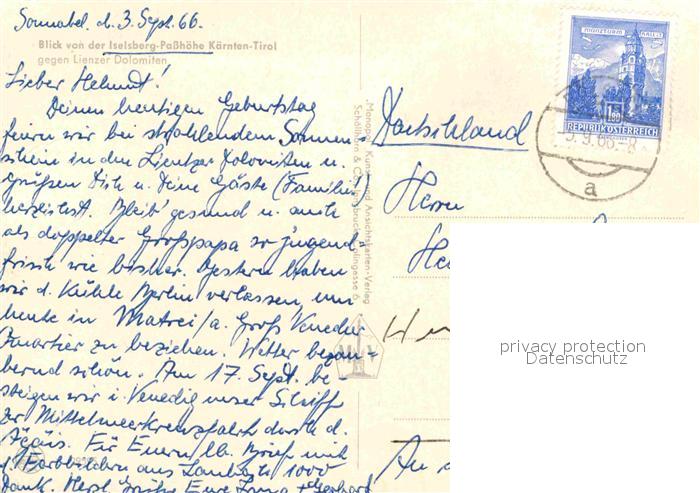 Sonnabd. d. 3. Sept. 66.
Blick von der Iselsberg-Paßhöhe Kärnten-Tirol
gegen Lienzer Dolomiten
Lieber Helmut!
Deinen heutigen Geburtstag
feiern wir bei strahlendem Sonnen-
schein in den Lienzer Dolomiten u.
grüßen Dich u. Deine Gäste (Familie)
herzlichst. Bleib' gesund u. auch
als doppelter Großpapa so jugend=
frisch wie bisher. Gestern haben
wir d. Kühle Berlin verlassen, um
heute in Matrei/a. Groß Venediger
Quartier zu beziehen. Wetter bezau=
bernd schön. Am 17. Sept. be-
steigen wir i. Venedig unser Schiff
zur Mittelmeerkreuzfahrt durch d.
Ägäis. Für Euern lb. Brief mit
Farbbildern aus 1000
Dank. Herzl. Grüße Eure + Gerhard
"Monopol" Kunst- und Ansichtskarten-Verlag
Schöllhorn & Co., Innsbruck, 6
MÜNZTURM HALL i. T.
1.80
REPUBLIK ÖSTERREICH
5.9.66.-8
a
Deutschland
Herrn
He
An
privacy protection
Datenschutz